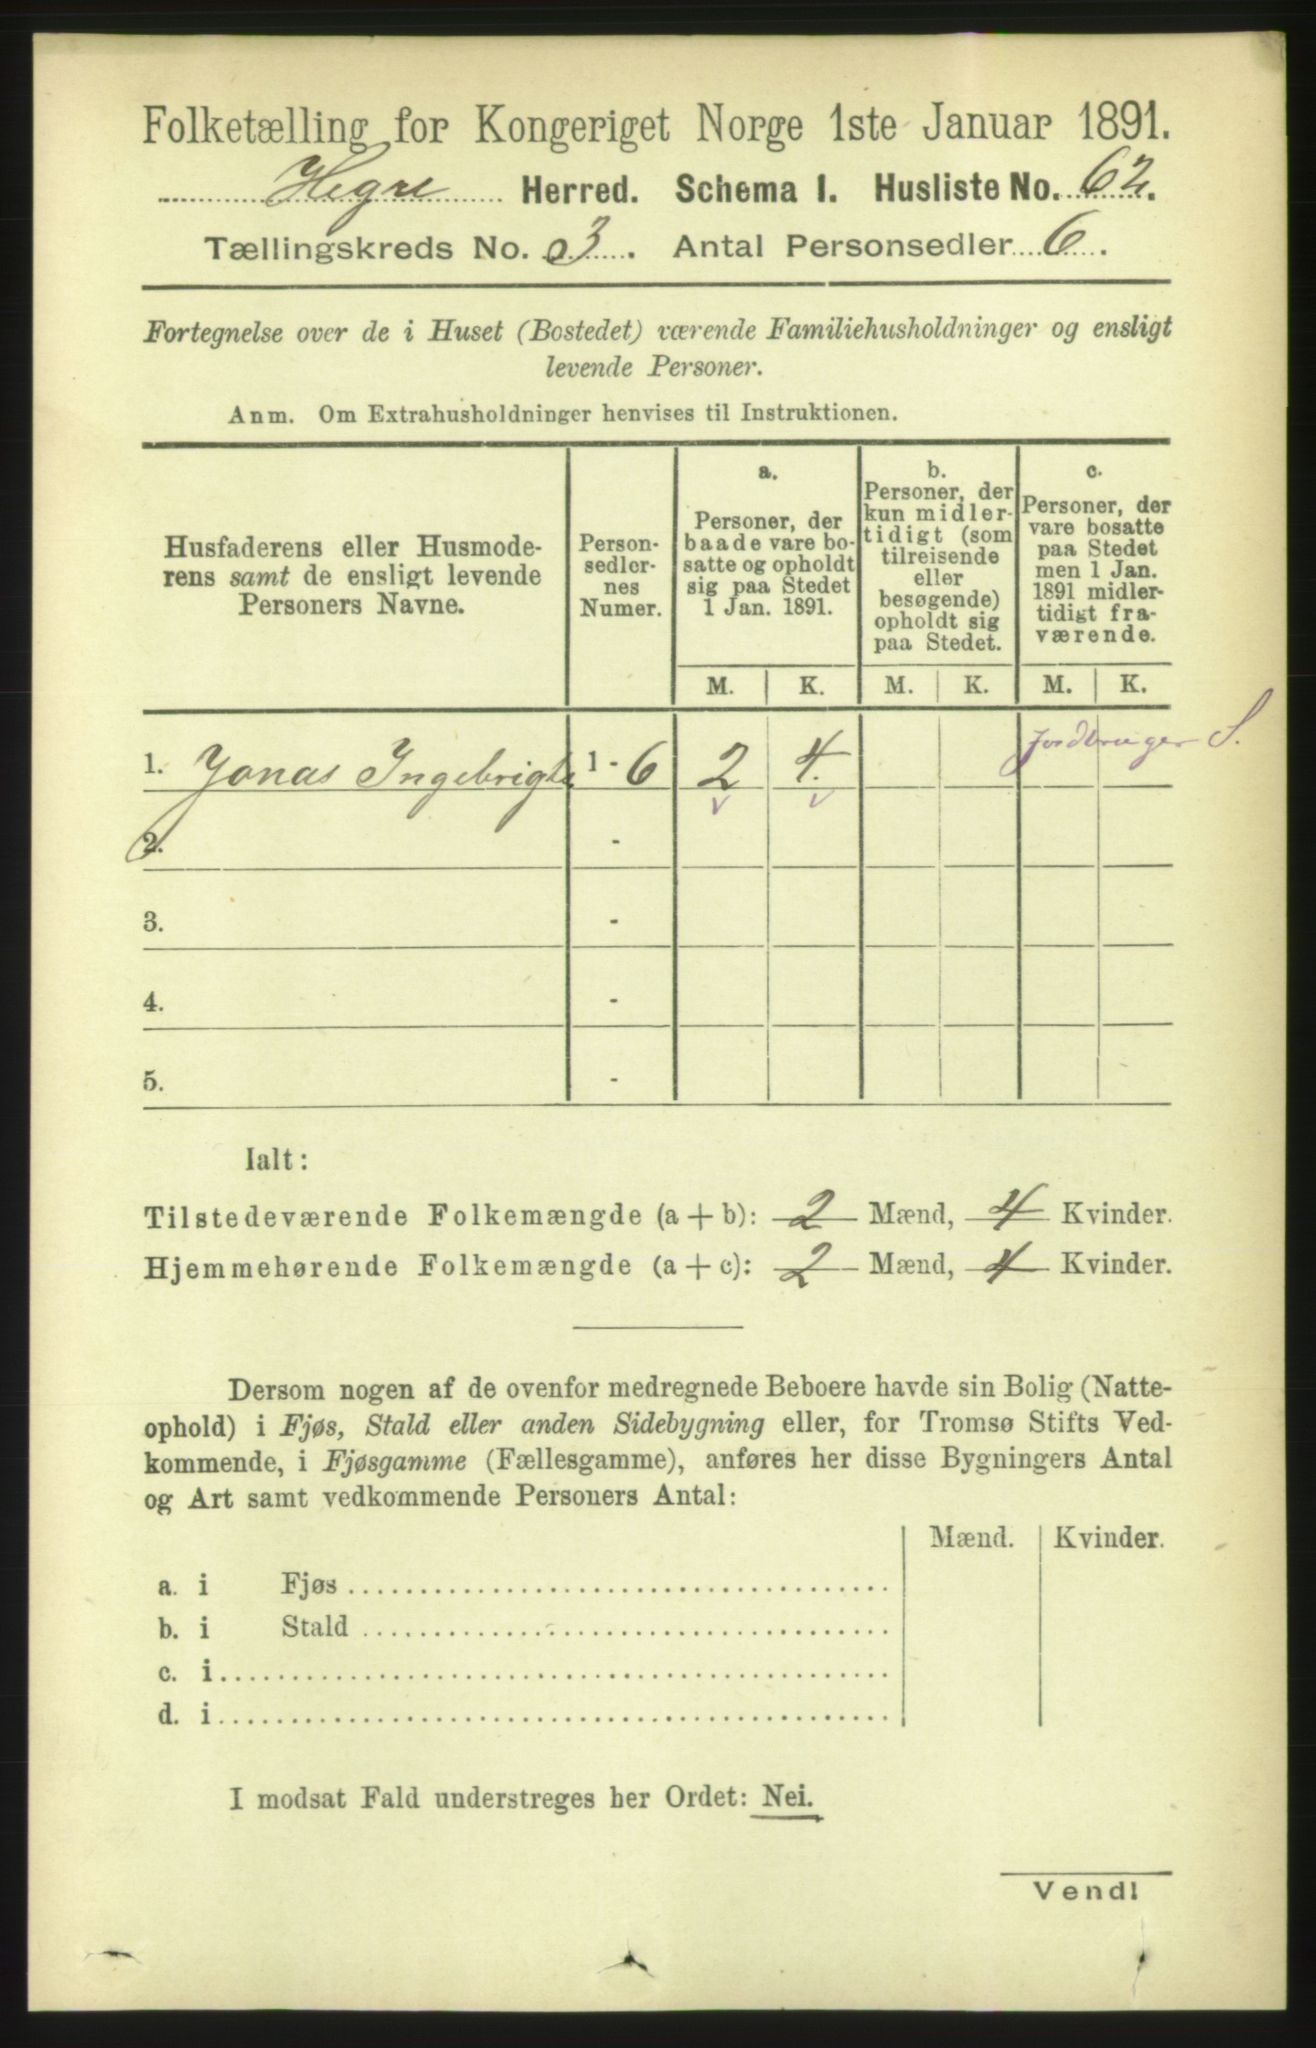 Folketælling for Kongeriget Norge 1ste Januar 1891.
Hegre Herred. Schema I. Husliste No. 62.
Tællingskreds No. 3. Antal Personsedler 6.
Fortegnelse over de i Huset (Bostedet) værende Familiehusholdninger og ensligt
levende Personer.
Anm. Om Extrahusholdninger henvises til Instruktionen.
Husfaderens eller Husmode-
rens samt de ensligt levende
Personers Navne.
Person-
sedler-
nes
Numer.
a.
Personer, der
baade vare bo-
satte og opholdt
sig paa Stedet
1 Jan. 1891.
b.
Personer, der
kun midler-
tidigt (som
tilreisende
eller
besøgende)
opholdt sig
paa Stedet.
c.
Personer, der
vare bosatte
paa Stedet
men 1 Jan.
1891 midler-
tidigt fra-
værende.
M. K. M. K. M. K.
Jordbruger S.
1. Jonas Ingebrigts 1 - 6 2 4.
v v
2. -
3. -
4. -
5. -
Ialt:
Tilstedeværende Folkemængde (a + b): 2 Mænd, 4 Kvinder.
Hjemmehørende Folkemængde (a + c): 2 Mænd, 4 Kvinder.
Dersom nogen af de ovenfor medregnede Beboere havde sin Bolig (Natte-
ophold) i Fjøs, Stald eller anden Sidebygning eller, for Tromsø Stifts Ved-
kommende, i Fjøsgamme (Fællesgamme), anføres her disse Bygningers Antal
og Art samt vedkommende Personers Antal:
Mænd. Kvinder.
a. i Fjøs
b. i Stald
c. i
d. i
I modsat Fald understreges her Ordet: Nei.
Vend!